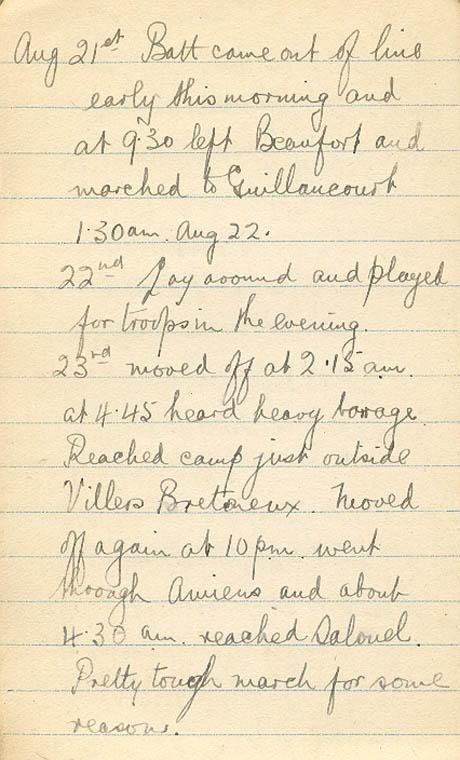 Aug 21st Batt came out of line
early this morning and
at 9.30 left Beaufort and
marched to Guillaucourt
1.30am. Aug 22.
22nd Lay around and played
for troops in the evening.
23rd moved off at 2.15 am.
at 4.45 heard heavy barage
Reached camp just outside
Villers Bretoneux. Moved
off again at 10 pm. went
through Amiens and about
4.30 am. reached Salouel.
Pretty tough march for some
reason.